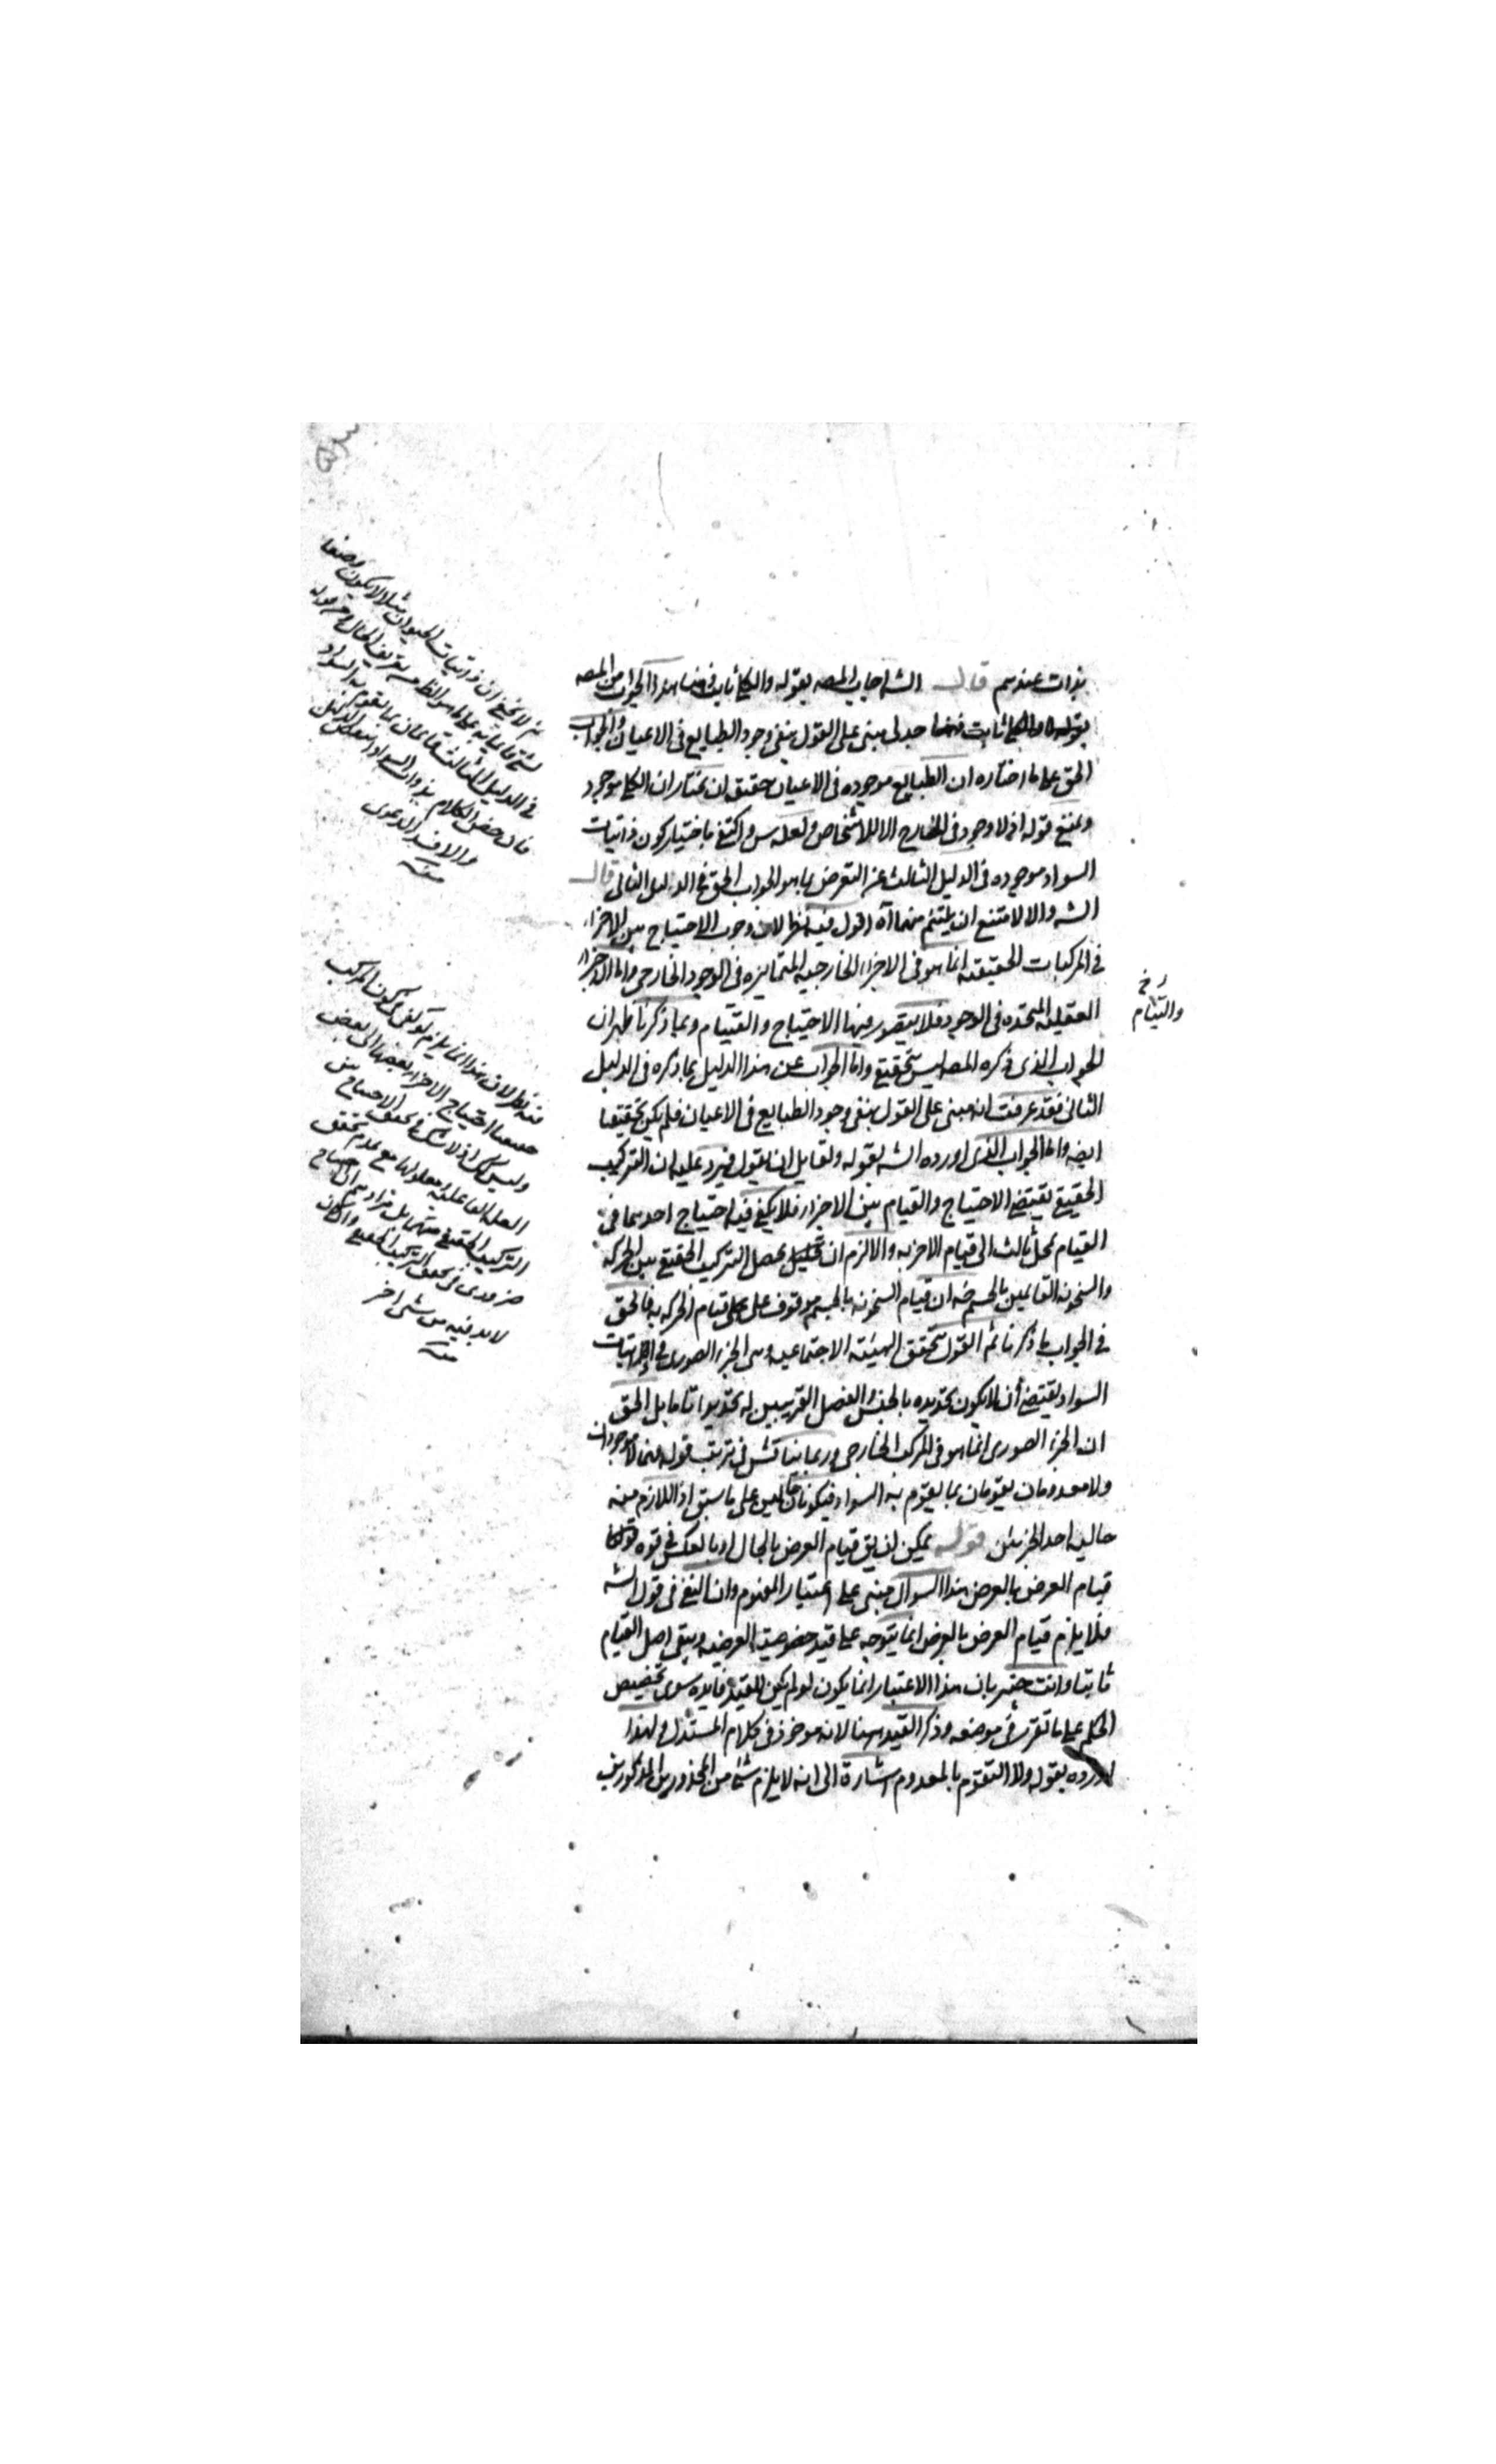 بذات عندهم قال الشه اجاب المصه بقوله والكلى ثابت فى هذا الجواب من المصه
بقوله والكلى ثابت جدلى مبنى على القول بنفى وجود الطبايع فى الاعيان والجواب
الحق على ما اختاره ان الطبايع موجوده فى الاعيان حقيقة ان نختار ان الكلى موجود
ونمنع قوله اذ لا وجود فى الخارج الا للاشخاص ولعله س واكتفى باختيار كون ذاتيات
السواد موجوده فى الدليل الثالث عن التعرض بما هو الجواب الحق فى الدليل الثانى قال
الشه والا لامتنع ان يلتئم منهما آه اقول فيه نظر لان وجوب الاحتياج بين الاجزاء
فى المركبات الحقيقيه انما هو فى الاجزاء الخارجيه المتمايزه فى الوجود الخارجى واما الاجزاء
العقليه المتحده فى الوجود فلا يتصور منها الاحتياج والقيام وبما ذكرنا ظهر ان
الجواب الذى ذكره المصه ليس بتحقيقى واما الجواب عن هذا الدليل بما ذكره فى الدليل
الثانى فقد عرفت انه مبنى على القول بنفى وجود الطبايع فى الاعيان فلم يكن تحقيقيا
ايضه واما الجواب الذى اورده الشه بقوله ولقايل ان يقول فيرد عليه ان التركيب
الحقيقى يقتضى الاحتياج والقيام بين الاجزاء فلا يكفى فيه احتياج احدهما فى
القيام بمحل ثالث الى قيام الاخر به والا لزم ان يحصل التركيب الحقيقى بين الحركه
والسخونه القائمين بالجسم ضه ان قيام السخونه بالجسم موقوف على قيام الحركه به فالحق
فى الجواب ما ذكرنا ثم القول بتحقق الهيئه الاجتماعيه وهى الجزء الصورى فى
السواد يقتضى أن لا يكون تحديده بالجنس والفصل القريبين له تحديدا تاما بل الحق
ان الجزء الصورى انما هو فى المركب الخارجى وربما يناقش فى ترتب قوله فهما لا موجودان
ولا معدومان يقومان بما يقوم به السواد فيكونان حالين على ما سبق اذ اللازم منه
حاليه احد الجزئين قوله يمكن ان يق قيام العرض بالحال او بالعكس فى قوه قولنا
قيام العرض بالعرض هذا السوال مبنى على اعتبار المفهوم وان النفى فى قول الشه
فلا يلزم قيام العرض بالعرض انما يتوجه على قيد خصوصية العرضيه ويبقى اصل القيام
ثابتا وانت خبير بان هذا الاعتبار انما يكون لو لم يكن للقيد فايده سوى تخصيص
الحكم على ما تقرر فى موضعه وذكر القيد ههنا لانه موخوذ فى كلام المستدل ولهذا
اورده بقوله ولا التقوم بالمعدوم اشارة الى انه لا يلزم شئ من المحذورين المذكورين
والتيام
ثم لا يخفى ان ذاتيات الحيوان مثلا لا يكون وصفا
فى الدليل الثالث قائمان بما يقوم به السواد
فان خص الكلام بذوات السواد
والا فسد الدعوى
منه
فيه نظر لان هذا انما يلزم لو كفى فى كون المركب
حقيقيا احتياج الاجزاء بعضها الى البعض
وليس كك اذ لا شك فى تحقق الاحتياج بين
العله الفاعليه ومعلولها مع عدم تحقق
التركيب الحقيقى منهما بل مرادهم ان الاحتياج
ضرورى فى تحقق التركيب الحقيقى
لا بد فيه من شئ اخر
منه